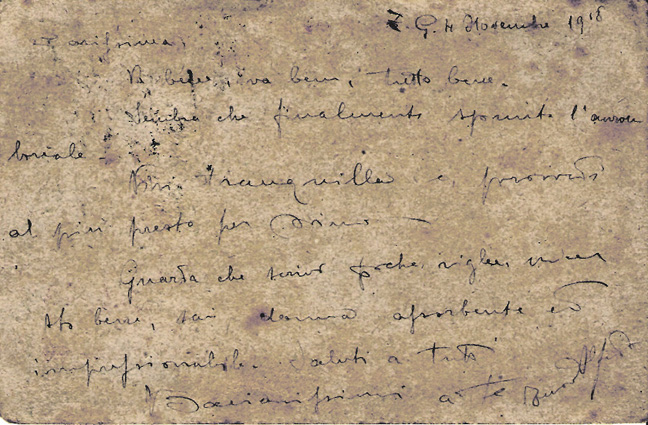 Z. G. 4 Novembre 1918
Carissima,
Va bene, va bene, tutto bene.
Sembra che finalmente spunti l'aurora
boreale.
Vivi tranquilla e provvedi
al più presto per
Guarda che scrivo poche righe,
sto bene, sai donna assorbente ed
impressionabile. Saluti a tutti
Bacionissimi a te